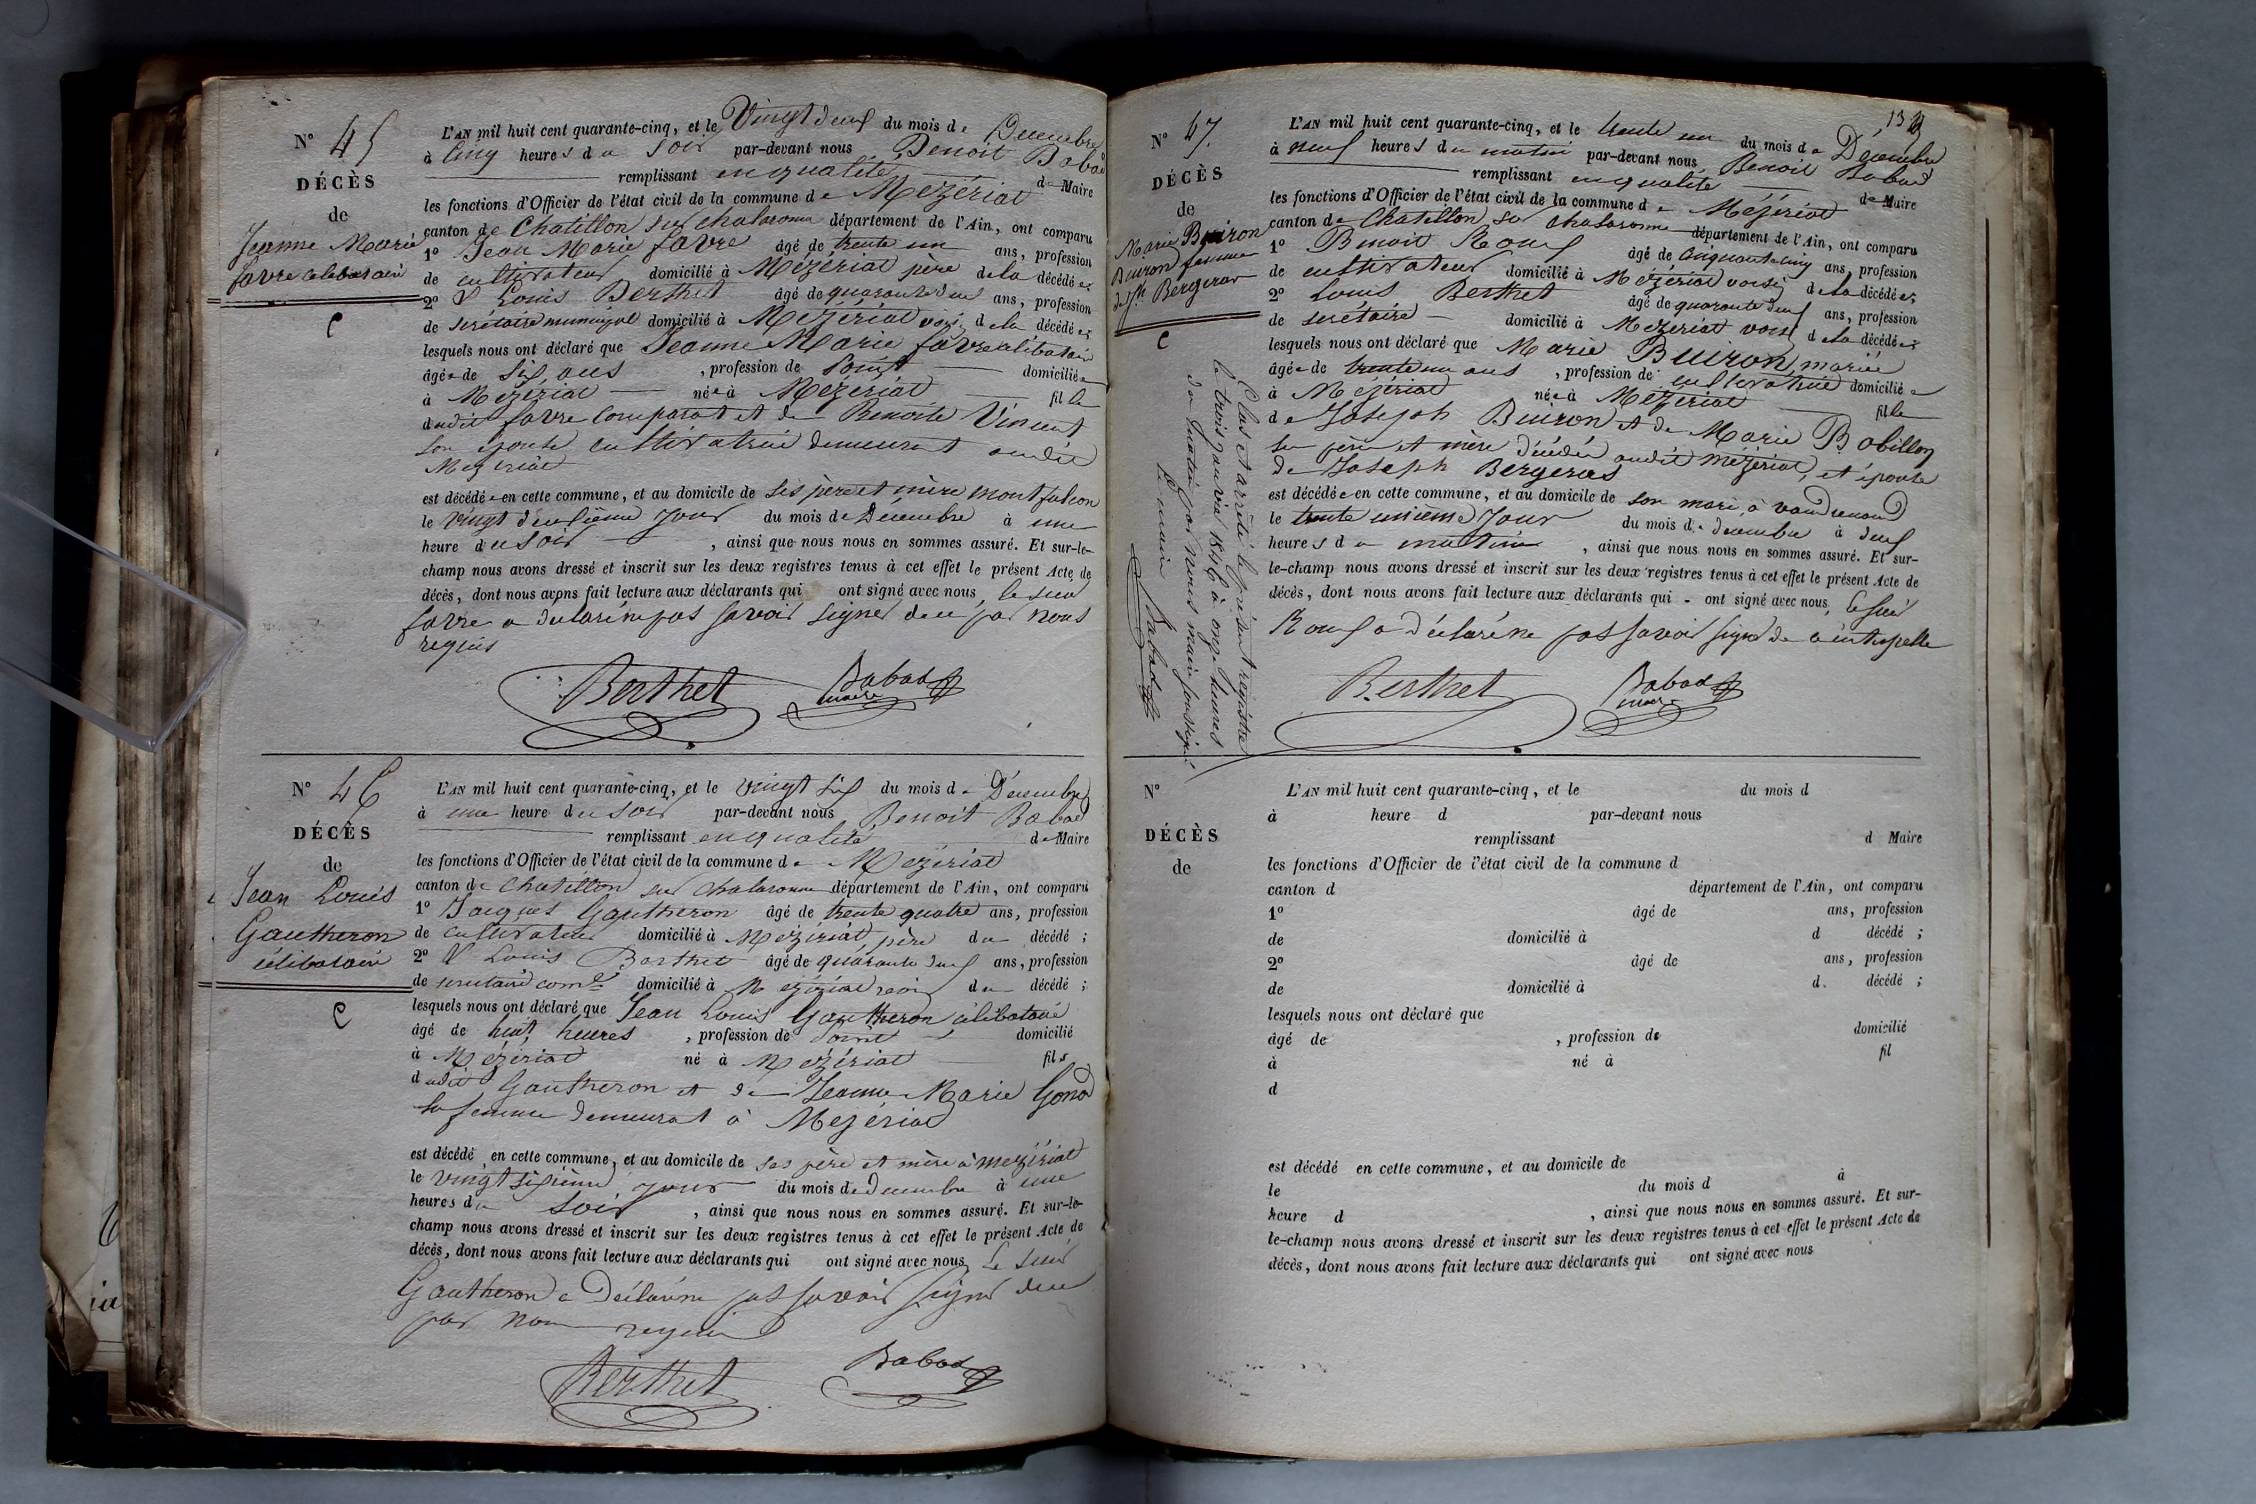 N° 45
DÉCÈS
de
Jeanne Marie
favre celibataire
C
L'AN mil huit cent quarante-cinq, et le Vingt deux du mois de Decembre
à Cinq heures du soir par-devant nous Benoit Babad
remplissant en qualité de Maire
les fonctions d'Officier de l'état civil de la commune de Mézériat
canton de Chatillon sur chalaronne département de l'Ain, ont comparu
1° Jean Marie favre âgé de trente un ans, profession
de cultivateur domicilié à Mézériat père de la décédée;
2° Louis Berthet âgé de quarante deux ans, profession
de secrétaire municipal domicilié à Mézériat voisin de la décédée;
lesquels nous ont déclaré que Jeanne Marie favre célibataire
âgée de six ans , profession de domiciliée
à Mézériat née à Mézériat fille
dudit favre comparant et de Benoite Vincent
son épouse cultivatrice demeurant audit
Mézériat
est décédée en cette commune, et au domicile de ses père et mère montfalcon
le vingt deuxième jour du mois de Decembre à une
heure du soir , ainsi que nous nous en sommes assuré. Et sur-le-
champ nous avons dressé et inscrit sur les deux registres tenus à cet effet le présent Acte de
décès, dont nous avons fait lecture aux déclarants qui ont signé avec nous, le sieur
favre a déclaré ne pas savoir signer de ce par nous
requis
Berthet Babad
maire
N° 46
DÉCÈS
de
Jean Louis
Gautheron
célibataire
C
L'AN mil huit cent quarante-cinq, et le vingt six du mois de Décembre
à une heure du soir par-devant nous Benoit Babad
remplissant en qualité de Maire
les fonctions d'Officier de l'état civil de la commune de Mézériat
canton de Chatillon sur chalaronne département de l'Ain, ont comparu
1° Jacques Gautheron âgé de trente quatre ans, profession
de cultivateur domicilié à Mézériat, père du décédé ;
2° Louis Berthet âgé de quarante deux ans, profession
de secretaire domicilié à Mézériat voisin du décédé ;
lesquels nous ont déclaré que Jean Louis Gautheron célibataire
âgé de huit heures , profession de domicilié
à Mézériat né à Mézériat fils
dudit Gautheron et de Jeanne Marie Gonod
sa femme demeurant à Mézériat
est décédé en cette commune, et au domicile de ses père et mère à Mézériat
le vingt sixième jour du mois de Decembre à une
heures du soir , ainsi que nous nous en sommes assuré. Et sur-le-
champ nous avons dressé et inscrit sur les deux registres tenus à cet effet le présent Acte de
décès, dont nous avons fait lecture aux déclarants qui ont signé avec nous, Le sieur
Gautheron a déclaré ne pas savoir signer de ce
par nous requis
Berthet Babad
N° 47.
DÉCÈS
de
Marie Buiron
Buiron femme
de Jh Bergeras
C
L'AN mil huit cent quarante-cinq, et le trente un du mois de Décembre
à neuf heures du matin par-devant nous Benoit Babad
remplissant en qualité de Maire
les fonctions d'Officier de l'état civil de la commune de Mézériat
canton de Chatillon sur chalaronne département de l'Ain, ont comparu
1° Benoit Roux âgé de cinquante cinq ans, profession
de cultivateur domicilié à Mézériat voisin de la décédée;
2° Louis Berthet âgé de quarante deux ans, profession
de secrétaire domicilié à Mézériat voisin de la décédée;
lesquels nous ont déclaré que Marie Buiron, mariée
âgée de trente un ans , profession de cultivatrice domiciliée
à Mézériat née à Mézériat fille
de Joseph Buiron et de Marie Bobillon
ses père et mère décédés audit Mézériat, et épouse
de Joseph Bergeras
est décédée en cette commune, et au domicile de son mari, à vandrenand
le trente unième jour du mois de Decembre à deux
heures du matin , ainsi que nous nous en sommes assuré. Et sur-
le-champ nous avons dressé et inscrit sur les deux registres tenus à cet effet le présent Acte de
décès, dont nous avons fait lecture aux déclarants qui ont signé avec nous, le sieur
Roux a déclaré ne pas savoir signer de ce interpellé
Berthet Babad
maire
Clos et arrêté le présent registre
le trois janvier 1846 à onze heures
du matin par nous maire soussigné
Le maire Babad
N°
DÉCÈS
de
L'AN mil huit cent quarante-cinq, et le du mois d
à heure d par-devant nous
remplissant d Maire
les fonctions d'Officier de l'état civil de la commune d
canton d département de l'Ain, ont comparu
1° âgé de ans, profession
de domicilié à d décédé ;
2° âgé de ans, profession
de domicilié à d décédé ;
lesquels nous ont déclaré que
âgé de , profession de domicilié
à né à fil
d
est décédé en cette commune, et au domicile de
le du mois d à
heure d , ainsi que nous nous en sommes assuré. Et sur-
le-champ nous avons dressé et inscrit sur les deux registres tenus à cet effet le présent Acte de
décès, dont nous avons fait lecture aux déclarants qui ont signé avec nous